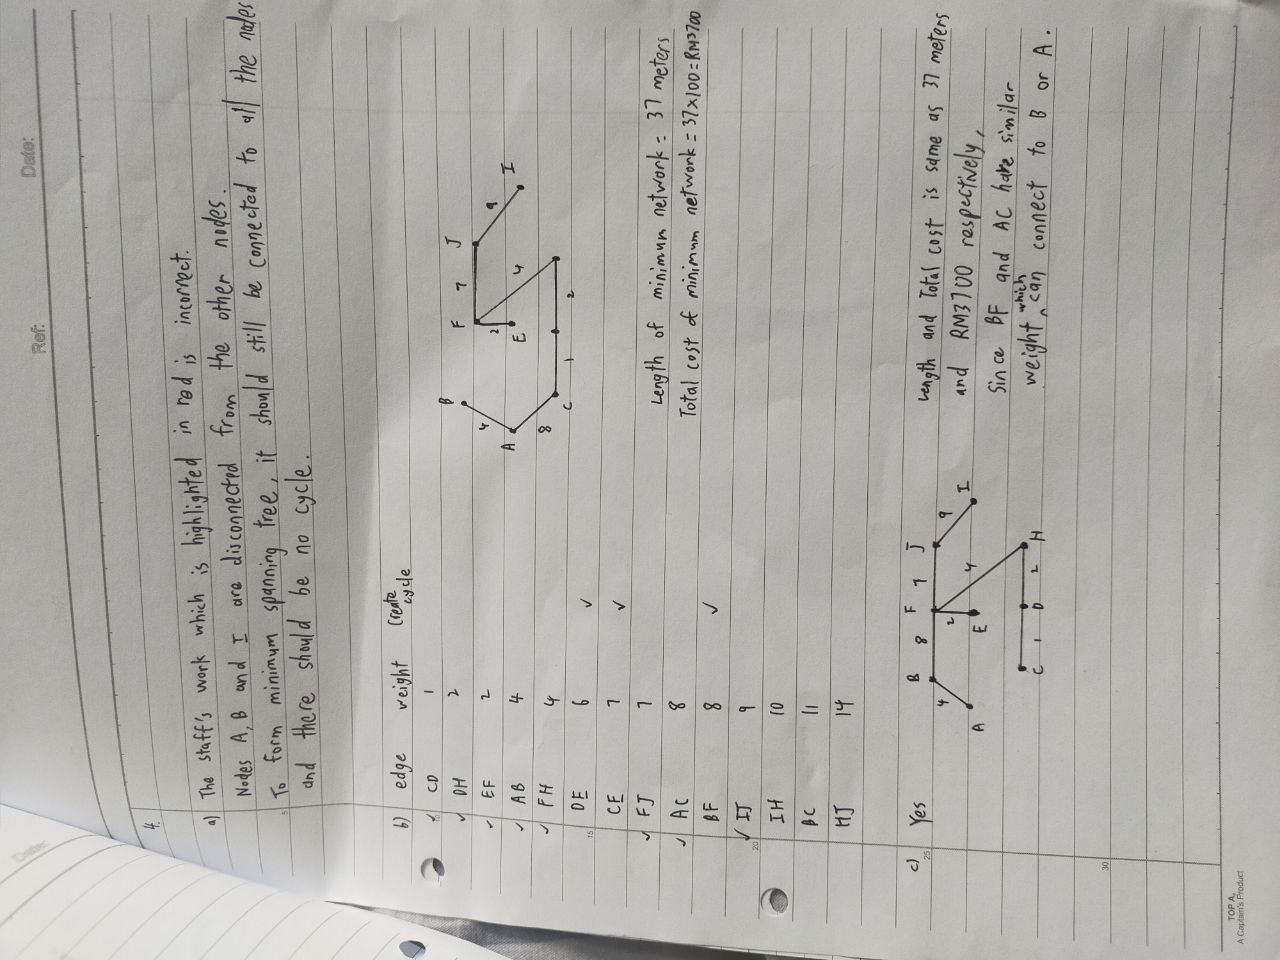 Date:
Ref:
Date:
4.
a) The staff's work which is highlighted in red is incorrect.
Nodes A, B and I are disconnected from the other nodes.
5
To form minimum spanning tree, it should still be connected to all the nodes
and there should be no cycle.
b) edge weight Create cycle
✓ 10 CD 1
✓ DH 2
✓ EF 2
✓ AB 4
✓ FH 4
DE 6 ✓
15
CE 7 ✓
✓ FJ 7
✓ AC 8
BF 8 ✓
✓ IJ 9
20
IH 10
BC 11
HJ 14
B F 7 J I
4 2 4 9
A E
8
C 1 2
Length of minimum network = 37 meters
Total cost of minimum network = 37x100 = RM3700
c) Yes
25
B 8 F 7 J I
4 2 4 9
A E
C 1 D 2 H
Length and Total cost is same as 37 meters
and RM3700 respectively,
Since BF and AC have similar
weight which can connect to B or A.
30
TOP A,
A Captain's Product